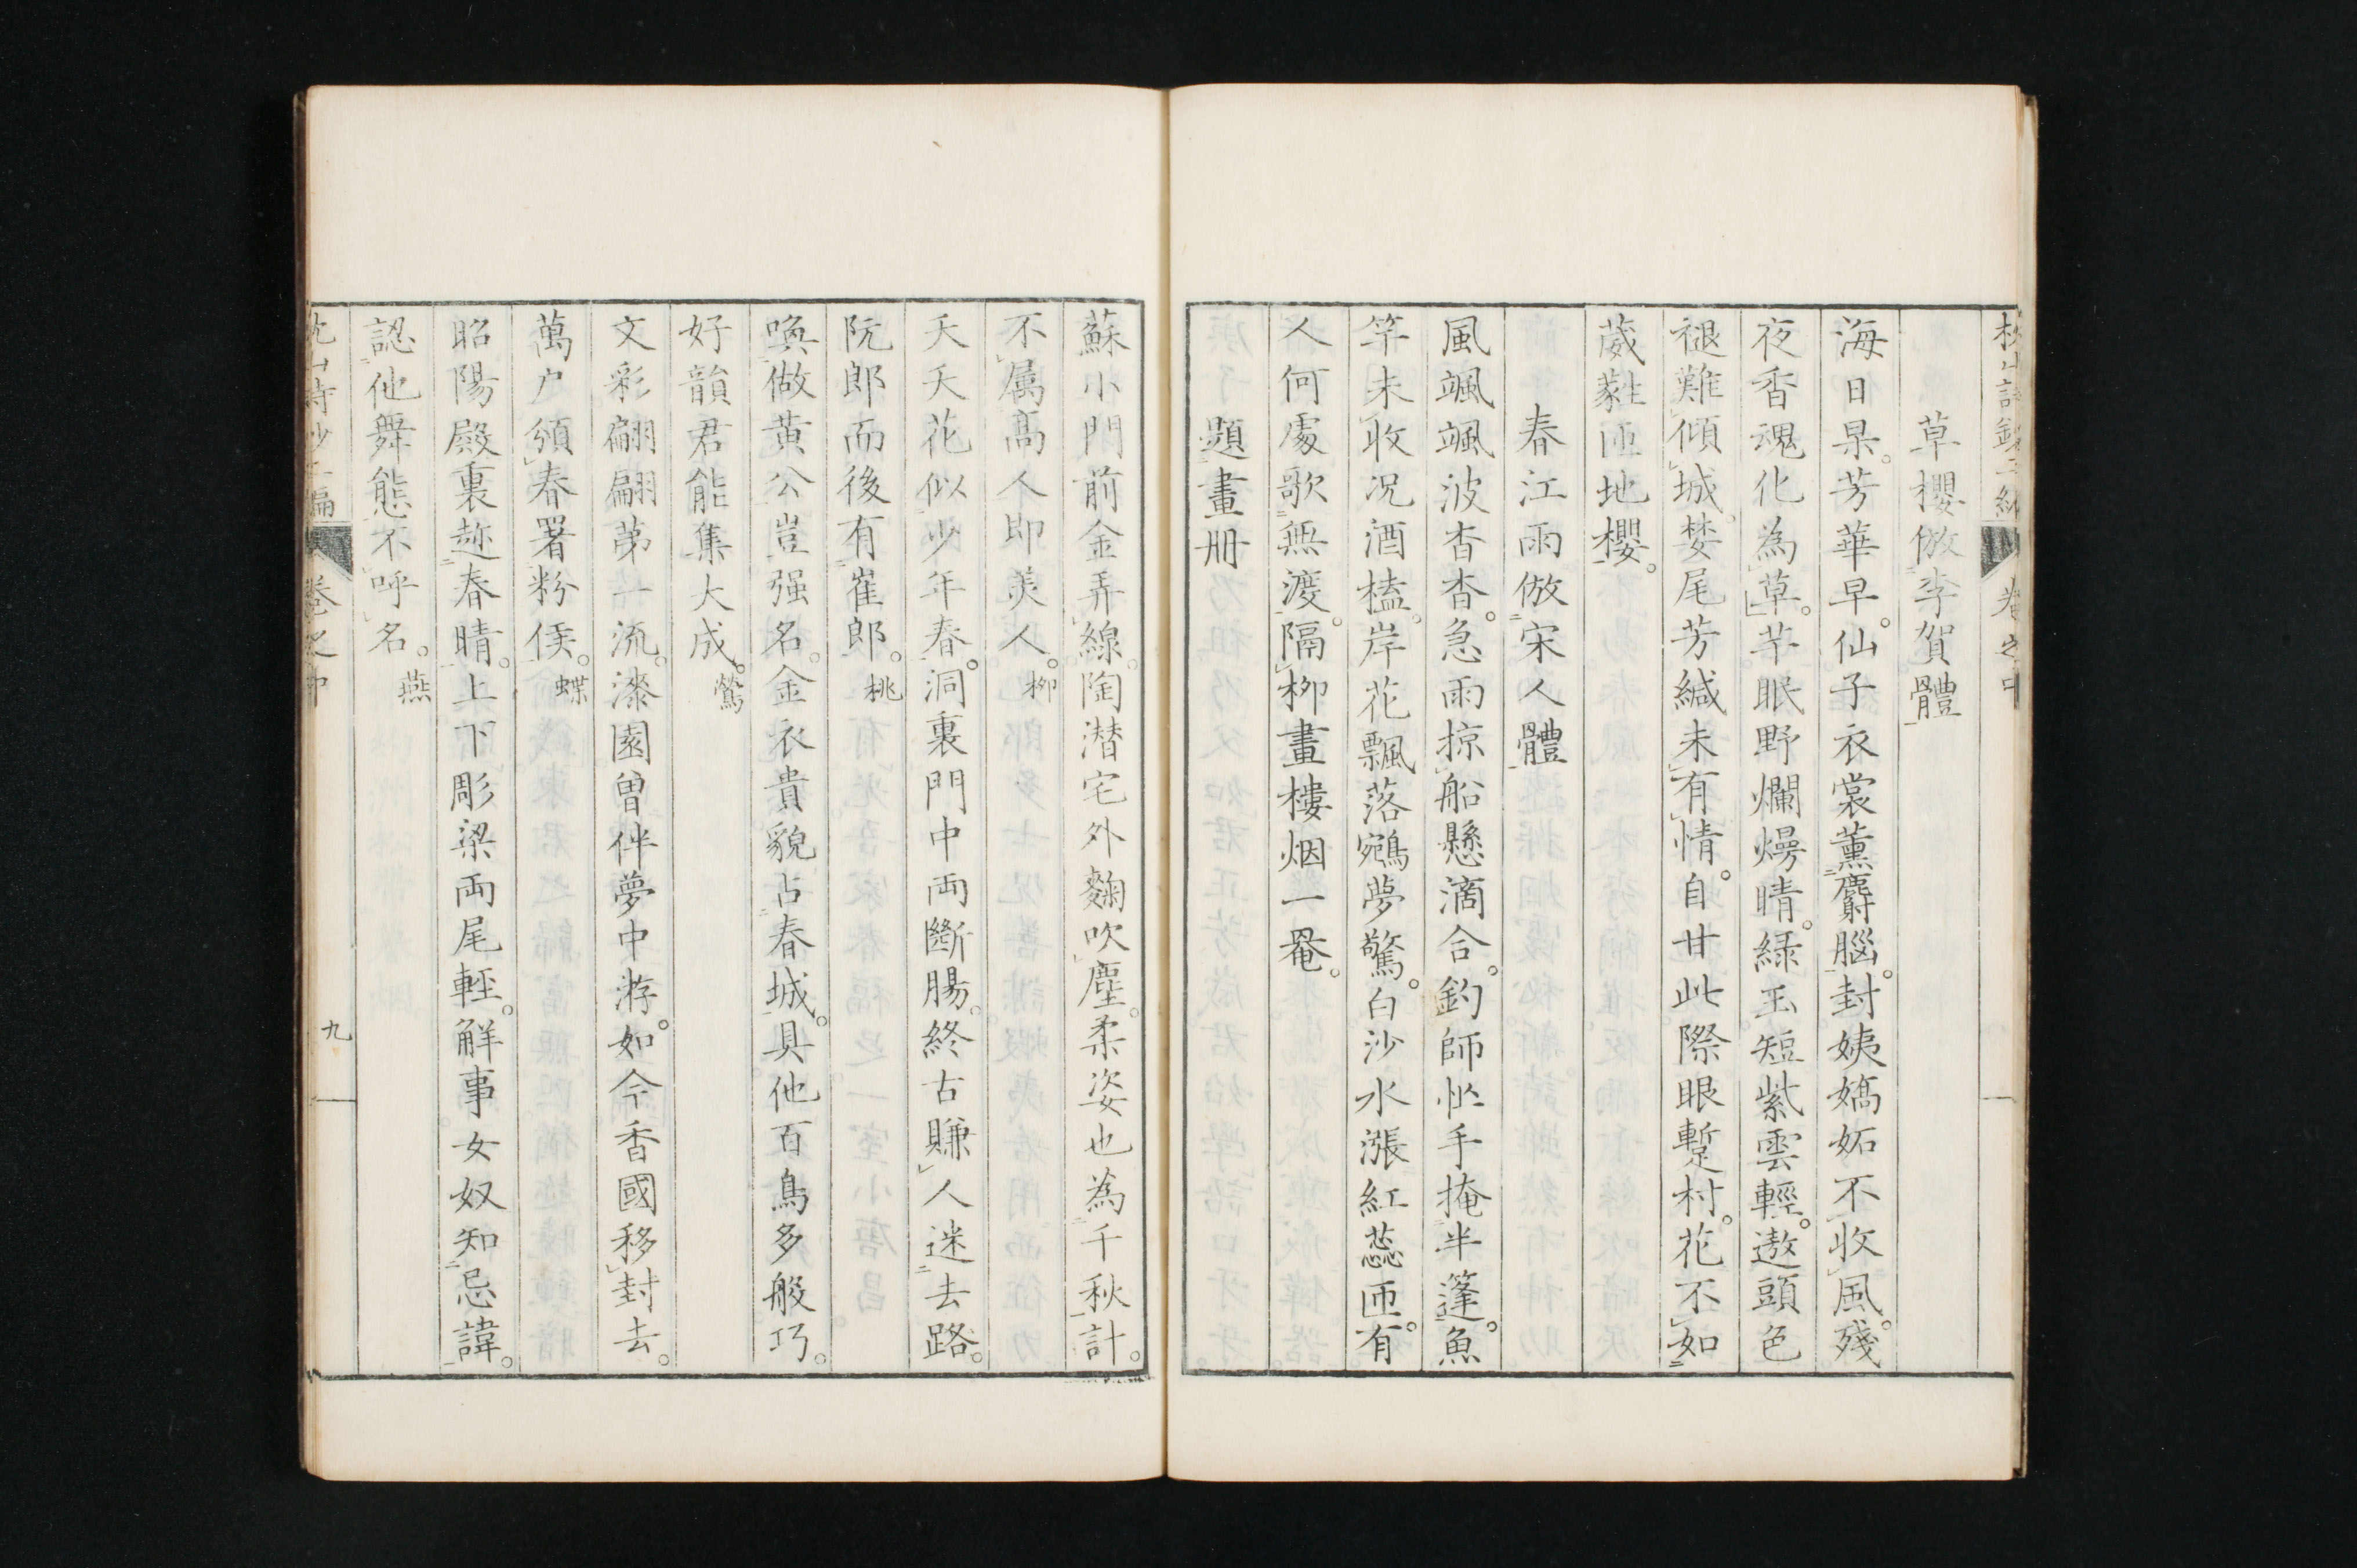 草櫻倣李賀體
海日杲。芳華早。仙子衣裳薰麝腦。封姨嬌妬不收風。殘
夜香魂化為草。芊眠野爛熳晴。綠玉短紫雲輕。遨頭色
褪難傾城。婪尾芳緘未有情。自甘此際眼蹔村。花不如
葳蕤匝地櫻。
春江雨倣宋人體
風颯颯波杳杳。急雨掠船懸滴合。釣師怭手掩半篷。魚
竿未收況酒榼。岸花飄落鵷夢驚。白沙水漲紅蕊匝。有
人何處歌無渡。隔柳畫樓烟一罨。
題畫冊
蘇小門前金弄線。陶潜宅外麴吹塵。柔姿也為千秋計。
不属高人即美人。柳
夭夭花似少年春。洞裏門中両斷腸。終古賺人迷去路。
阮郎而後有崔郎。桃
喚做黃公豈强名。金衣貴貌占春城。具他百鳥多般巧。
好韻君能集大成。鶯
文彩翩翩第一流。漆園曽伴夢中游。如今香國移封去。
萬户頒春署粉侯。蝶
昭陽殿裏趂春晴。上下彫梁両尾輕。解事女奴知忌諱。
認他舞態不呼名。燕
卷之中
九